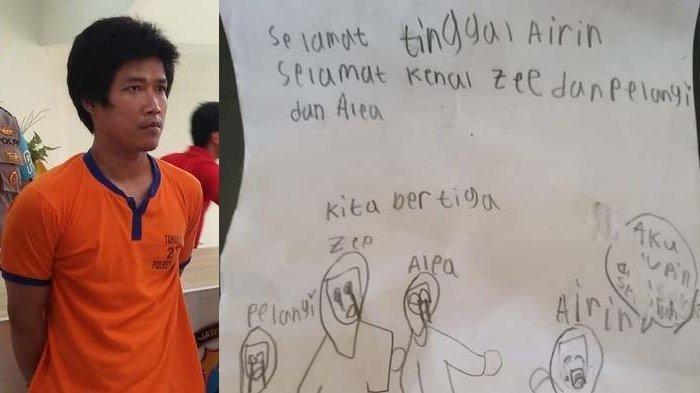 POLRI
TAHANAN
POLRES
Selamat tinggal Airin
Selamat kenal Zee dan pelangi
dan Alea
kita bertiga
Zee
Alea
pelangi
Airin
AKU